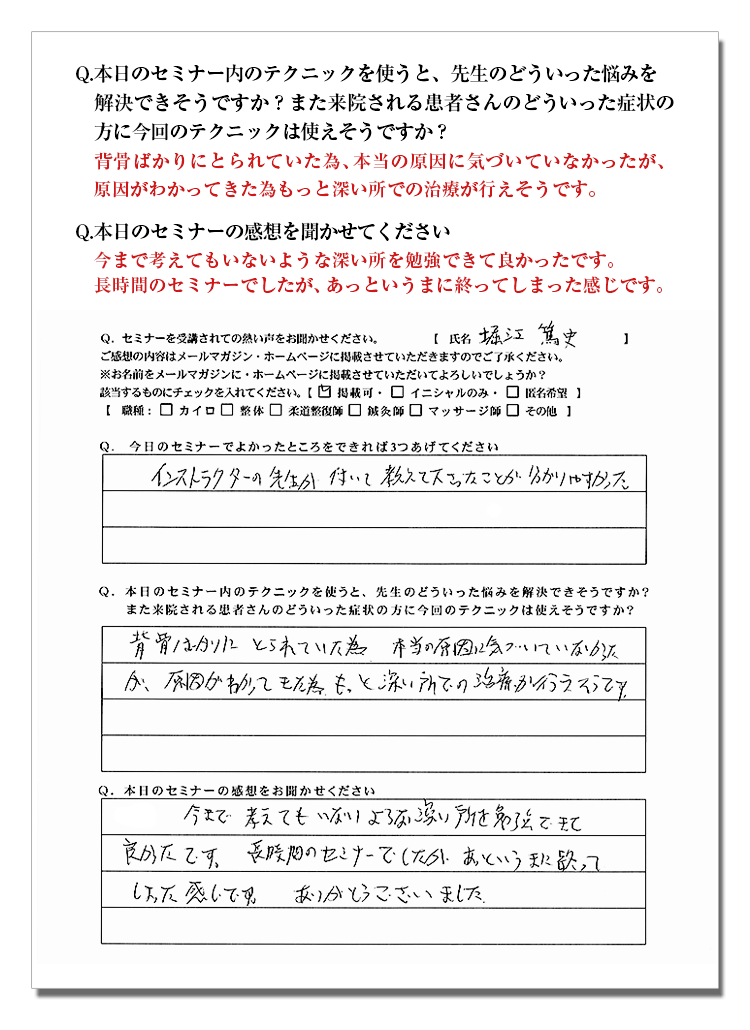 Q.本日のセミナー内のテクニックを使うと、先生のどういった悩みを
解決できそうですか？また来院される患者さんのどういった症状の
方に今回のテクニックは使えそうですか？
背骨ばかりにとられていた為、本当の原因に気づいていなかったが、
原因がわかってきた為もっと深い所での治療が行えそうです。
Q.本日のセミナーの感想を聞かせてください
今まで考えてもいないような深い所を勉強できて良かったです。
長時間のセミナーでしたが、あっというまに終ってしまった感じです。
Q．セミナーを受講されての熱い声をお聞かせください。 【 氏名 堀江 篤史 】
ご感想の内容はメールマガジン・ホームページに掲載させていただきますのでご了承ください。
※お名前をメールマガジンに・ホームページに掲載させていただいてよろしいでしょうか？
該当するものにチェックを入れてください。【 ☑ 掲載可・ □ イニシャルのみ・ □ 匿名希望 】
【 職種： □ カイロ □ 整体 □ 柔道整復師 □ 鍼灸師 □ マッサージ師 □ その他 】
Q． 今日のセミナーでよかったところをできれば3つあげてください
インストラクターの先生が 付いて 教えて下さったことが 分かりやすかった
Q．本日のセミナー内のテクニックを使うと、先生のどういった悩みを解決できそうですか？
また来院される患者さんのどういった症状の方に今回のテクニックは使えそうですか？
背骨ばかりに とられていた為 本当の原因に気づいていなかった
が、原因がわかってきた為、もっと深い所での治療が行えそうです。
Q．本日のセミナーの感想をお聞かせください
今まで 考えても いないような深い所を勉強できて
良かったです。 長時間のセミナーでしたが あっというまに終って
しまった感じです。 ありがとうございました。